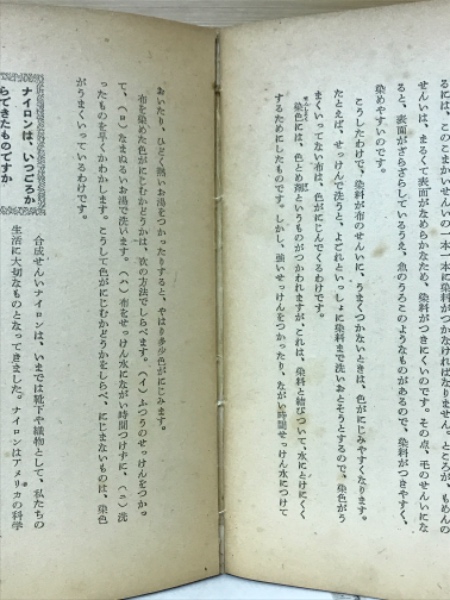 るには、このこまかいせんいの一本一本に染料がつかなければなりません。ところが、もめんの
せんいは、まるくて表面がなめらかなため、染料がつきにくいのです。その点、毛のせんいにな
ると、表面がざらざらしているうえ、魚のうろこのようなものがあるので、染料がつきやすく、
染めやすいのです。
こうしたわけで、染料が布のせんいに、うまくつかないときは、色がにじみやすくなります。
たとえば、せっけんで洗うと、よごれといっしょに染料まで洗いおとそうとするので、染色がう
まくいってない布は、色がにじんでくるわけです。
染色には、色とめ剤というものがつかわれますが、これは、染料と結びついて、水にとけにくく
するためにしたものです。しかし、強いせっけんをつかったり、ながい時間せっけん水につけて
おいたり、ひどく熱いお湯をつかったりすると、やはり多少色がにじみます。
布を染めた色がにじむかどうかは、次の方法でしらべます。(イ)ふつうのせっけんをつかっ
て、(ロ)なまぬるいお湯で洗います。(ハ)布をせっけん水にながい時間つけずに、(ニ)洗
ったものを早くかわかします。こうして色がにじむかどうかをしらべ、にじまないものは、染色
がうまくいっているわけです。
ナイロンは、いつごろか
らできたものですか
合成せんいナイロンは、いまでは靴下や織物として、私たちの
生活に大切なものとなってきました。ナイロンはアメリカの科学